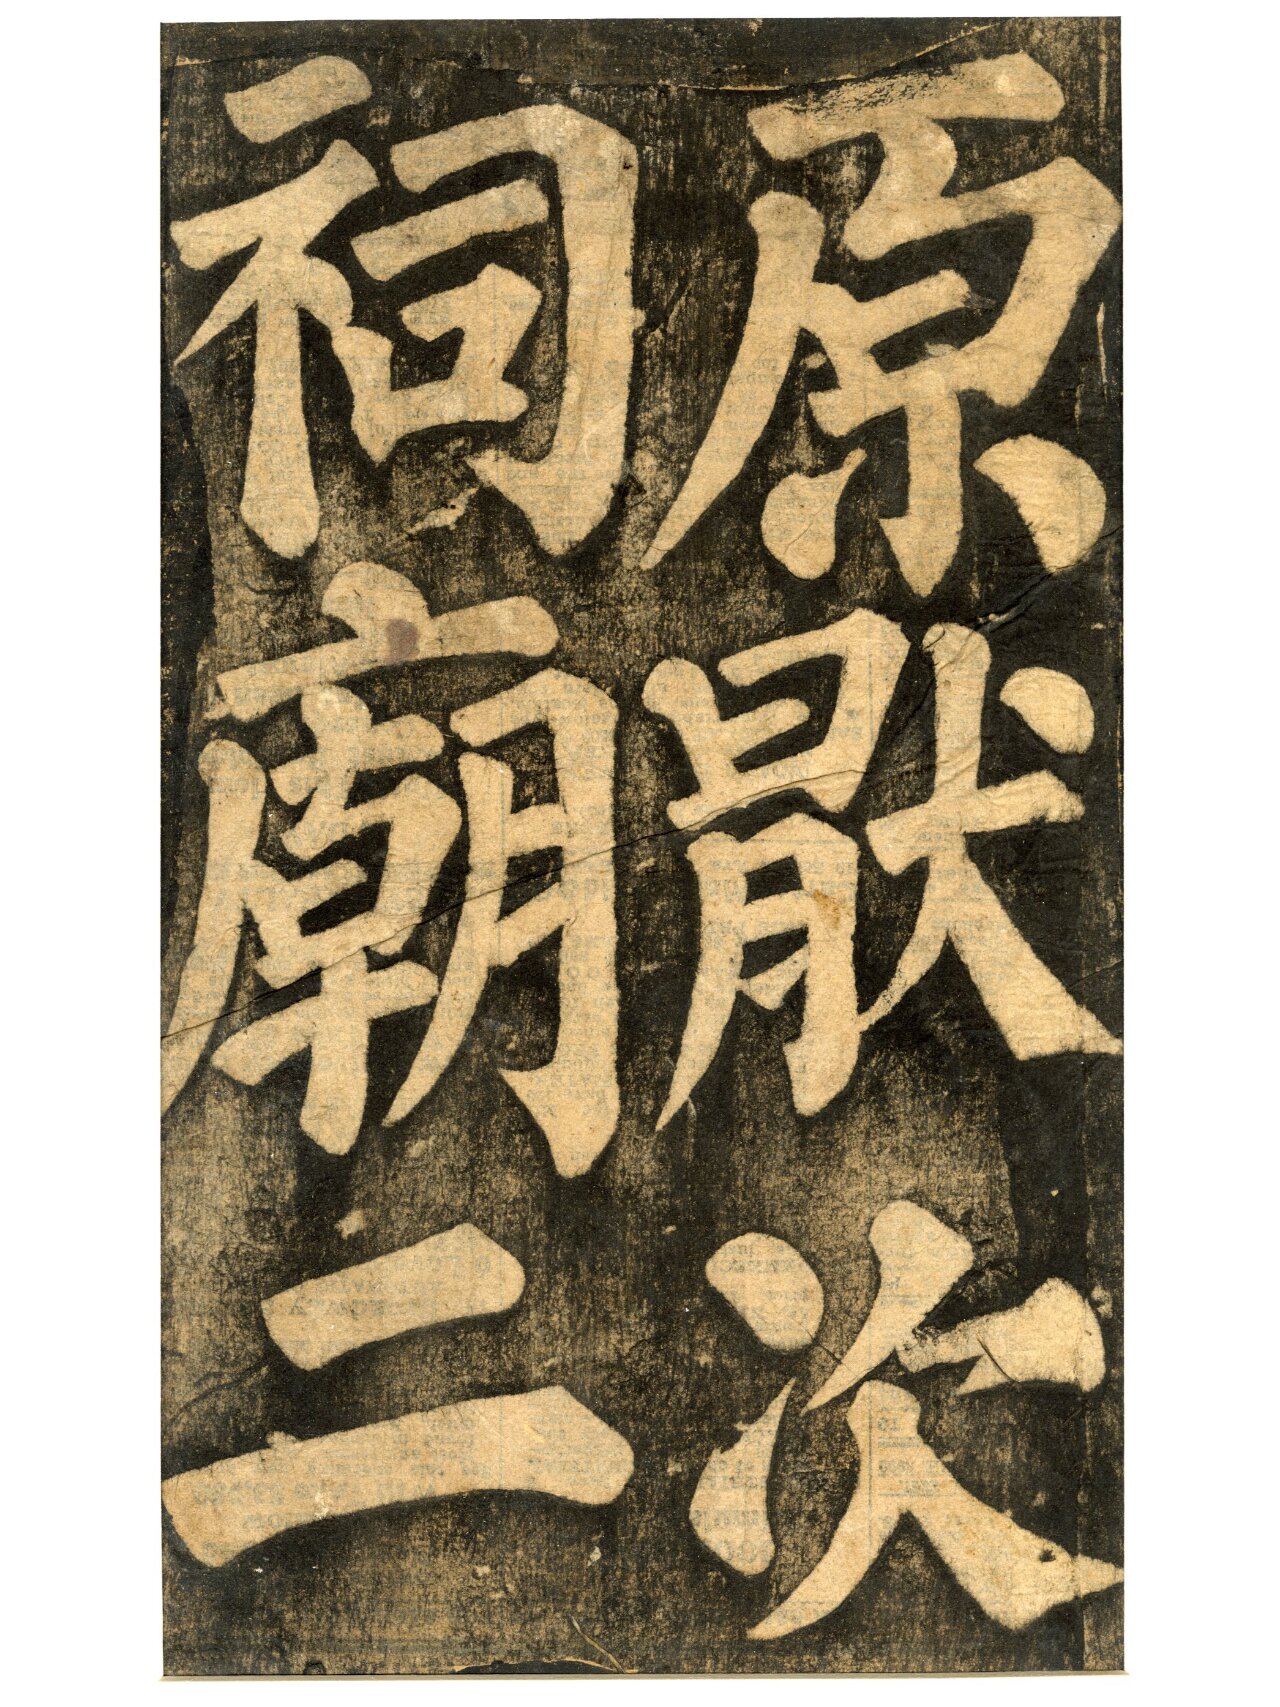 原猒次
祠廟二